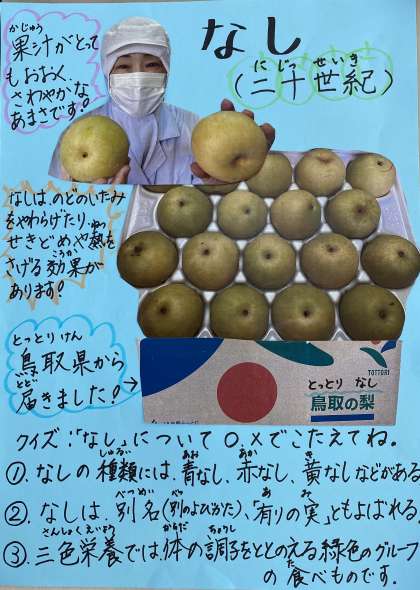 なし
(二十世紀)
にじっせいき
果汁がとって
かじゅう
もおおく、
さわやかな
あまさです!
なしは、のどのいたみ
をやわらげたり、
せきどめや熱を
ねつ
さげる効果が
こうか
あります!
とっとりけん
鳥取県から
とど
届きました!→
TOTTORI
とっとり なし
鳥取の梨
クイズ:「なし」について○、×でこたえてね。
しゅるい あお あか き
①.なしの種類には、青なし、赤なし、黄なしなどがある
べつめい べつ あ み
②.なしは、別名(別のよびかた)、「有りの実」ともよばれる。
さんしょくえいよう からだ ちょうし
③.三色栄養では、体の調子をととのえる緑色のグループ
の食べものです。
た